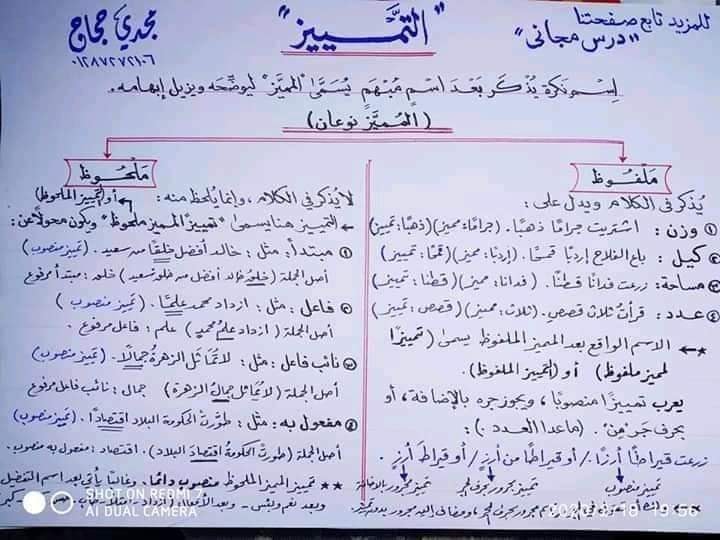 للمزيد تابع صفحتنا
"درس مجاني"
"التمييز"
مجدي حجاج
٠١٢٨٧٢٧٢١٠٦
اِسم نكرة يُذكر بَعْد اسمٍ مُبْهَمٍ يُسَمَّى "المميَّز" ليوضِّحَه ويزيل إبهامه.
(المُميَّز نوعان)
مَلْفُوظ
يُذكر في الكلام ويدل على:
① وزن: اشتريت جرامًا ذهبًا. (جرامًا: مميز) (ذهبًا: تمييز)
② كيل: باع الفلاح إردبًا قمحًا. (إردبًا: مميز) (قمحًا: تمييز)
③ مساحة: زرعت فدانًا قطنًا. (فدانًا: مميز) (قطنًا: تمييز)
④ عدد: قرأت ثلاث قصصٍ. (ثلاث: مميز) (قصص: تمييز)
الاسم الواقع بعد المميز الملفوظ يسمى (تمييزًا
لمميز ملفوظ) أو (التمييز الملفوظ).
يعرب تمييزًا منصوبًا، ويجوز جره بالإضافة، أو
بحرف جر "مِن". (ماعدا العدد):
زرعت قيراطًا أرزًا./ أو قيراطًا من أرزٍ./ أو قيراطَ أرزٍ.
تمييز منصوب
تمييز مجرور بحرف الجر
تمييز مجرور بالإضافة
مَلْحُوظ
لا يُذكر في الكلام، وإنما يُلحظ منه: أو (التمييز الملحوظ)
التمييز هنا يسمى "تمييز المميز ملحوظ" ويكون محولًا عن:
① مبتدأ: مثل: خالد أفضل خلقًا من سعيد. (تمييز منصوب)
أصل الجملة (خلق خالد أفضل من خلق سعيد) خلق: مبتدأ مرفوع
② فاعل: مثل: ازداد محمد علمًا. (تمييز منصوب)
أصل الجملة (ازداد علم محمد) علم: فاعل مرفوع.
③ نائب فاعل: مثل: لا تُماثَل الزهرةُ جمالًا. (تمييز منصوب)
أصل الجملة (لا يُماثَل جمال الزهرة) جمال: نائب فاعل مرفوع
④ مفعول به: مثل: طوَّرت الحكومة البلاد اقتصادًا. (تمييز منصوب)
أصل الجملة (طورت الحكومة اقتصاد البلاد). اقتصاد: مفعول به منصوب.
** تمييز المميز الملحوظ منصوب دائمًا. وغالبًا يأتي بعد اسم التفضيل
وبعد نعم وبئس - وبعد
SHOT ON REDMI 7
AI DUAL CAMERA
19:56